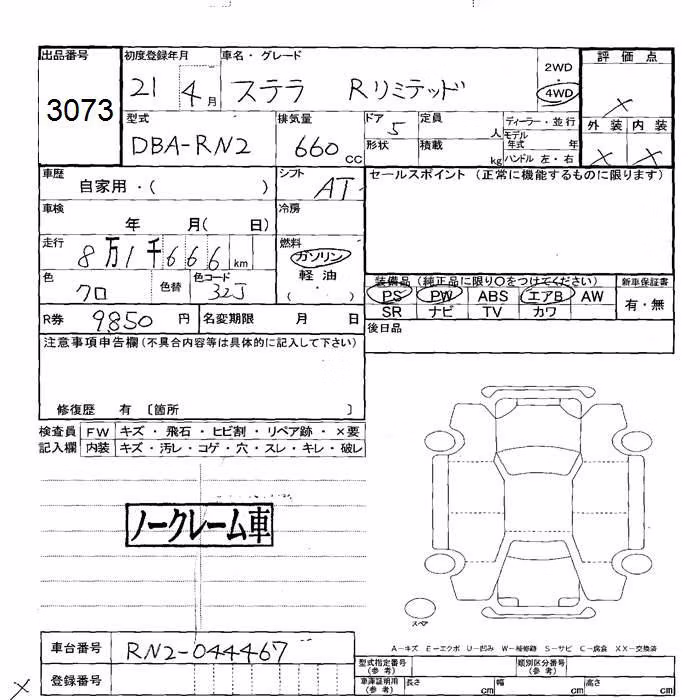 出品番号 初度登録年月 車名・グレード 2WD ・ 4WD 評価点
3073 21 4月 ステラ Rリミテッド ×
型式 排気量 ドア 定員 ディーラー・並行 外装 内装
DBA-RN2 660 cc 5 人 モデル年式 年 × ×
形状 積載 kg ハンドル 左・右
車歴 自家用・( ) シフト AT セールスポイント (正常に機能するものに限ります)
車検 年 月( 日) 冷房
走行 8万1千666km 燃料 ガソリン
軽油
( ・ )
色 クロ 色替 色コード 32J
装備品 (純正品に限り○をつけてください) 新車保証書
PS PW ABS エアB AW 有・無
SR ナビ TV カワ
R券 9,850 円 名変期限 月 日 後日品
注意事項申告欄(不具合内容等は具体的に記入して下さい)
修復歴 有 〔箇所 〕
検査員 FW キズ・飛石・ヒビ割・リペア跡・×要
記入欄 内装 キズ・汚レ・コゲ・穴・スレ・キレ・破レ
ノークレーム車
スペア
A-キズ E-エクボ U-凹み W-補修跡 S-サビ C-腐食 XX-交換済
車台番号 RN2-044467
型式指定番号(参考) 類別区分番号(参考)
登録番号
車庫証明用(参考) 長さ cm 幅 cm 高さ cm
×